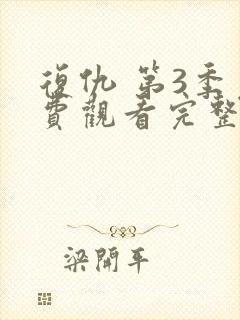 復仇 第3季
費觀看完整
梁開平